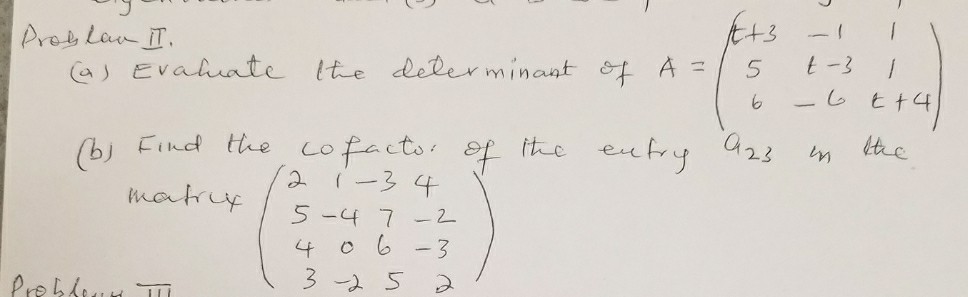 Problem II.
(a) Evaluate the determinant of A = ( t+3 -1 1
5 t-3 1
6 -6 t+4 )
(b) Find the cofactor of the entry a23 in the
matrix ( 2 1 -3 4
5 -4 7 -2
4 0 6 -3
3 -2 5 2 )
Problem III